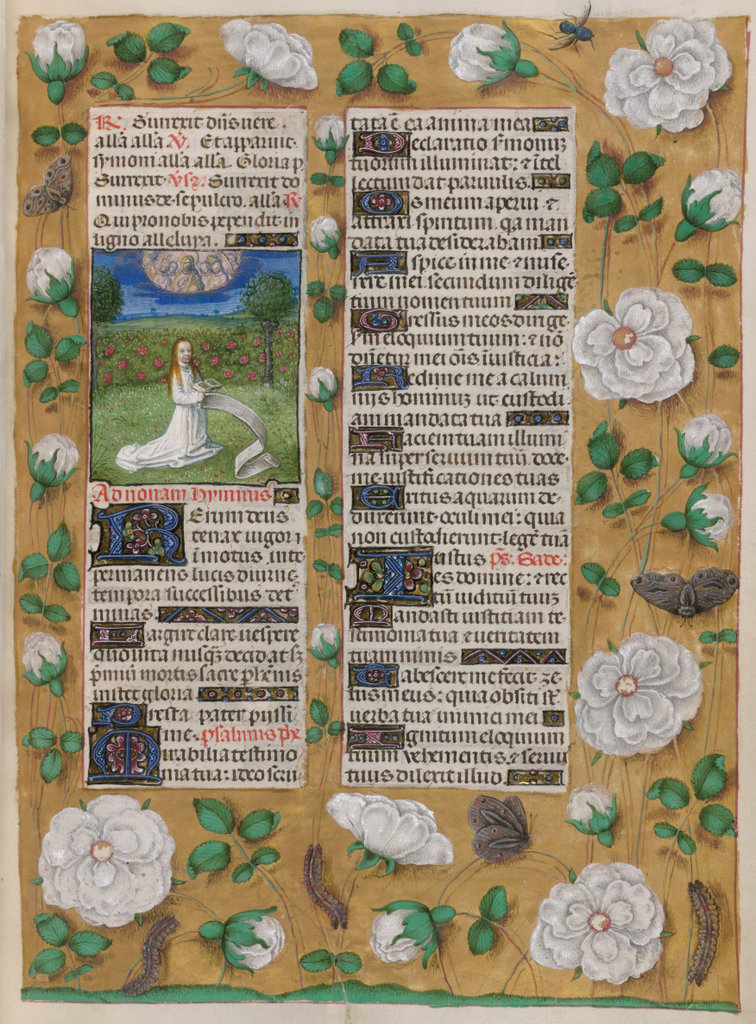 R. Surrexit dn̄s vere.
alla alla V. Et apparuit
symoni alla alla. Gloria p̄
Surrexit. Vs: Surrexit do
minus de sepulcro. alla R
Qui pro nobis pependit in
ligno alleluya.
Ad nonam hymnus
Rerum deus
tenax vigor i
īmotus inte
permanens lucis diurne
tempora successibus det̄
minas.
Largire clare vespere
quo vita nusq̄ decidat sȝ
p̄miū mortis sacre phēnis
instet gloria
Presta pater pijssi
me. psalmus
Mirabilia testimo
nia tua: ideo scru
tata ē ea anima mea
Declaratio s̄monuȝ
tuorum illuminat: ⁊ ītel
lectum dat parvulis.
Os meum aperui ⁊
attraxi spiritum. qa man
data tua desiderabam
Aspice in me ⁊ mise
rere mei. secundum dilige
tium nomen tuum
Gressus meos dirige
s̄m eloquium tuum: ⁊ nō
dn̄etur mei oīs iusticia:
Redime me a calum
nijs hominuȝ ut custodi
am mandata tua
Faciem tuam illumi
na super servum tuū. doce
me iustificationes tuas
Exitus aquarum de
duxerunt oculi mei: quia
non custodierunt legē tuā
Iustus ps. Sade:
es domine: ⁊ rec
tū iudiciū tuuȝ
Mandasti iusticiam te
stimonia tua ⁊ veritatem
tuam nimis
Tabescere me fecit ze
lus meus: quia obliti st̄
verba tua inimici mei
Ignitum eloquium
tuum vehementer ⁊ servu
tuus dilexit illud.